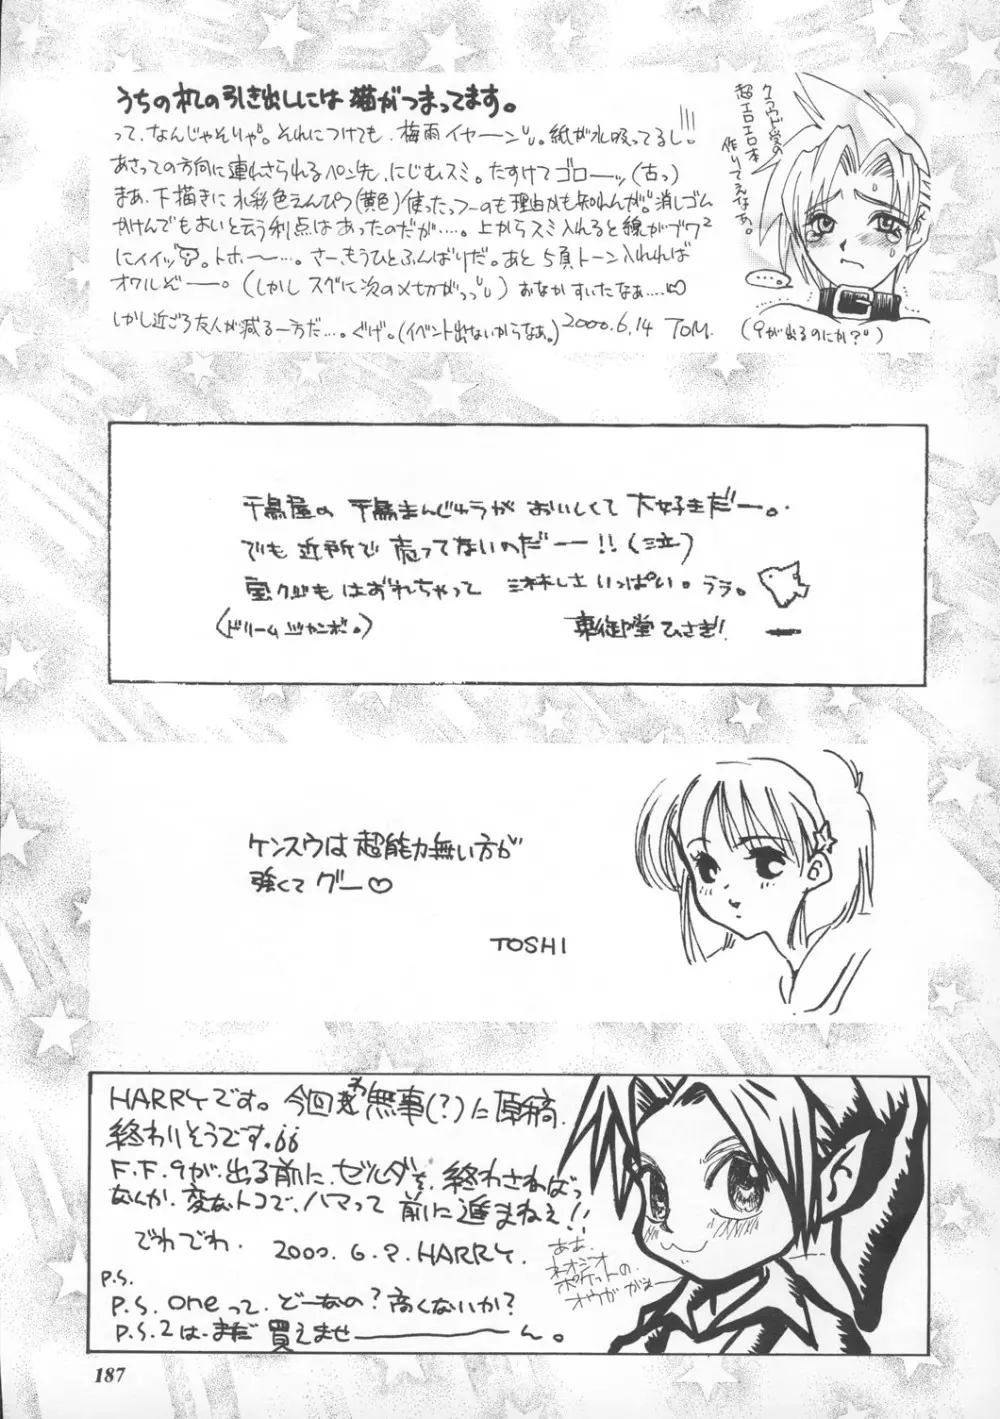 うちの机の引き出しには猫がつまってます。
って、なんじゃそりゃ。それにつけても、梅雨イヤーン。紙が水吸ってるし!!
あさっての方向に連れさられるペン先、にじむスミ。たすけてゴローッ(古っ)
まあ、下描きに水彩色えんぴつ(黄色)使ったっつーのも理由かも知れんが。消しゴム
かけんでもよいと云う利点はあったのだが…。上からスミ入れると線がブワ²
にイイッ。トホー…。さー、もうひとふんばりだ。あと5頁トーン入れれば
オワルぞー。(しかしスグに次の〆切がっっ)おなかすいたなぁ…
しかし近ごろ友人が減る一方だ…。ぐげ。(イベント出ないからなぁ。)2000.6.14 TOM.
クラウド受の
超エロエロ本
作りてぇなぁ。
(9が出るのにか?)
千鳥屋の千鳥まんじゅうがおいしくて大好きだー。
でも近所で売ってないのだー!!(泣)
宝クジもはずれちゃって淋しさいっぱい。ララ。
(ドリームジャンボ。)
東御堂ひさぎ!
ケンスウは超能力無い方が
強くてグー♡
TOSHI
HARRYです。今回わ無事(?)に原稿
終わりそうです。
F.F.9が出る前に、ゼルダを、終わさねばっ!
なんか、変なトコで、ハマって前に進まねえ!!
でわでわ。2000.6.?.HARRY.
ああ、
ネオジオ
ポケットの
オウガがぁー
P.S.
P.S.oneって、どーなの?高くないか?
P.S.2は、まだ買えませーーーん。
187